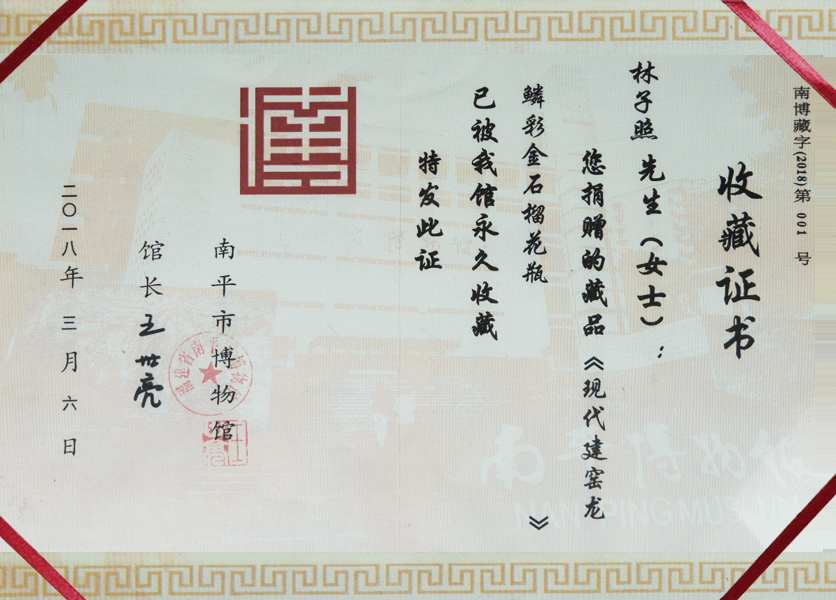 南博藏字(2018)第 001 号
收藏证书
林子照 先生（女士）：
您捐赠的藏品《现代建窑龙
鳞彩金石榴花瓶 》
已被我馆永久收藏
特发此证
南平市博物馆
馆长 王世亮
二〇一八年 三月六日
福建省南平市博物馆
南平博物馆
NANPING MUSEUM